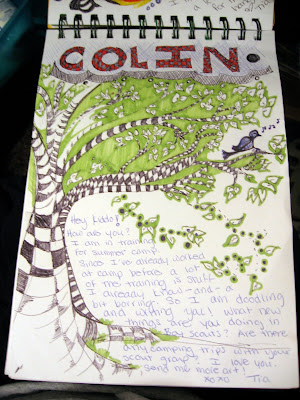 COLIN
Hey kiddo!
How are you?
I am in training
for summer camp.
Since I've already worked
at camp before a lot
of the training is stuff
I already know - and - a
bit boring. So I am doodling
and writing you! What new
things are you doing in
Boy Scouts? Are there
any camping trips with your
scout group? I love you.
send me more art!
xoxo Tia